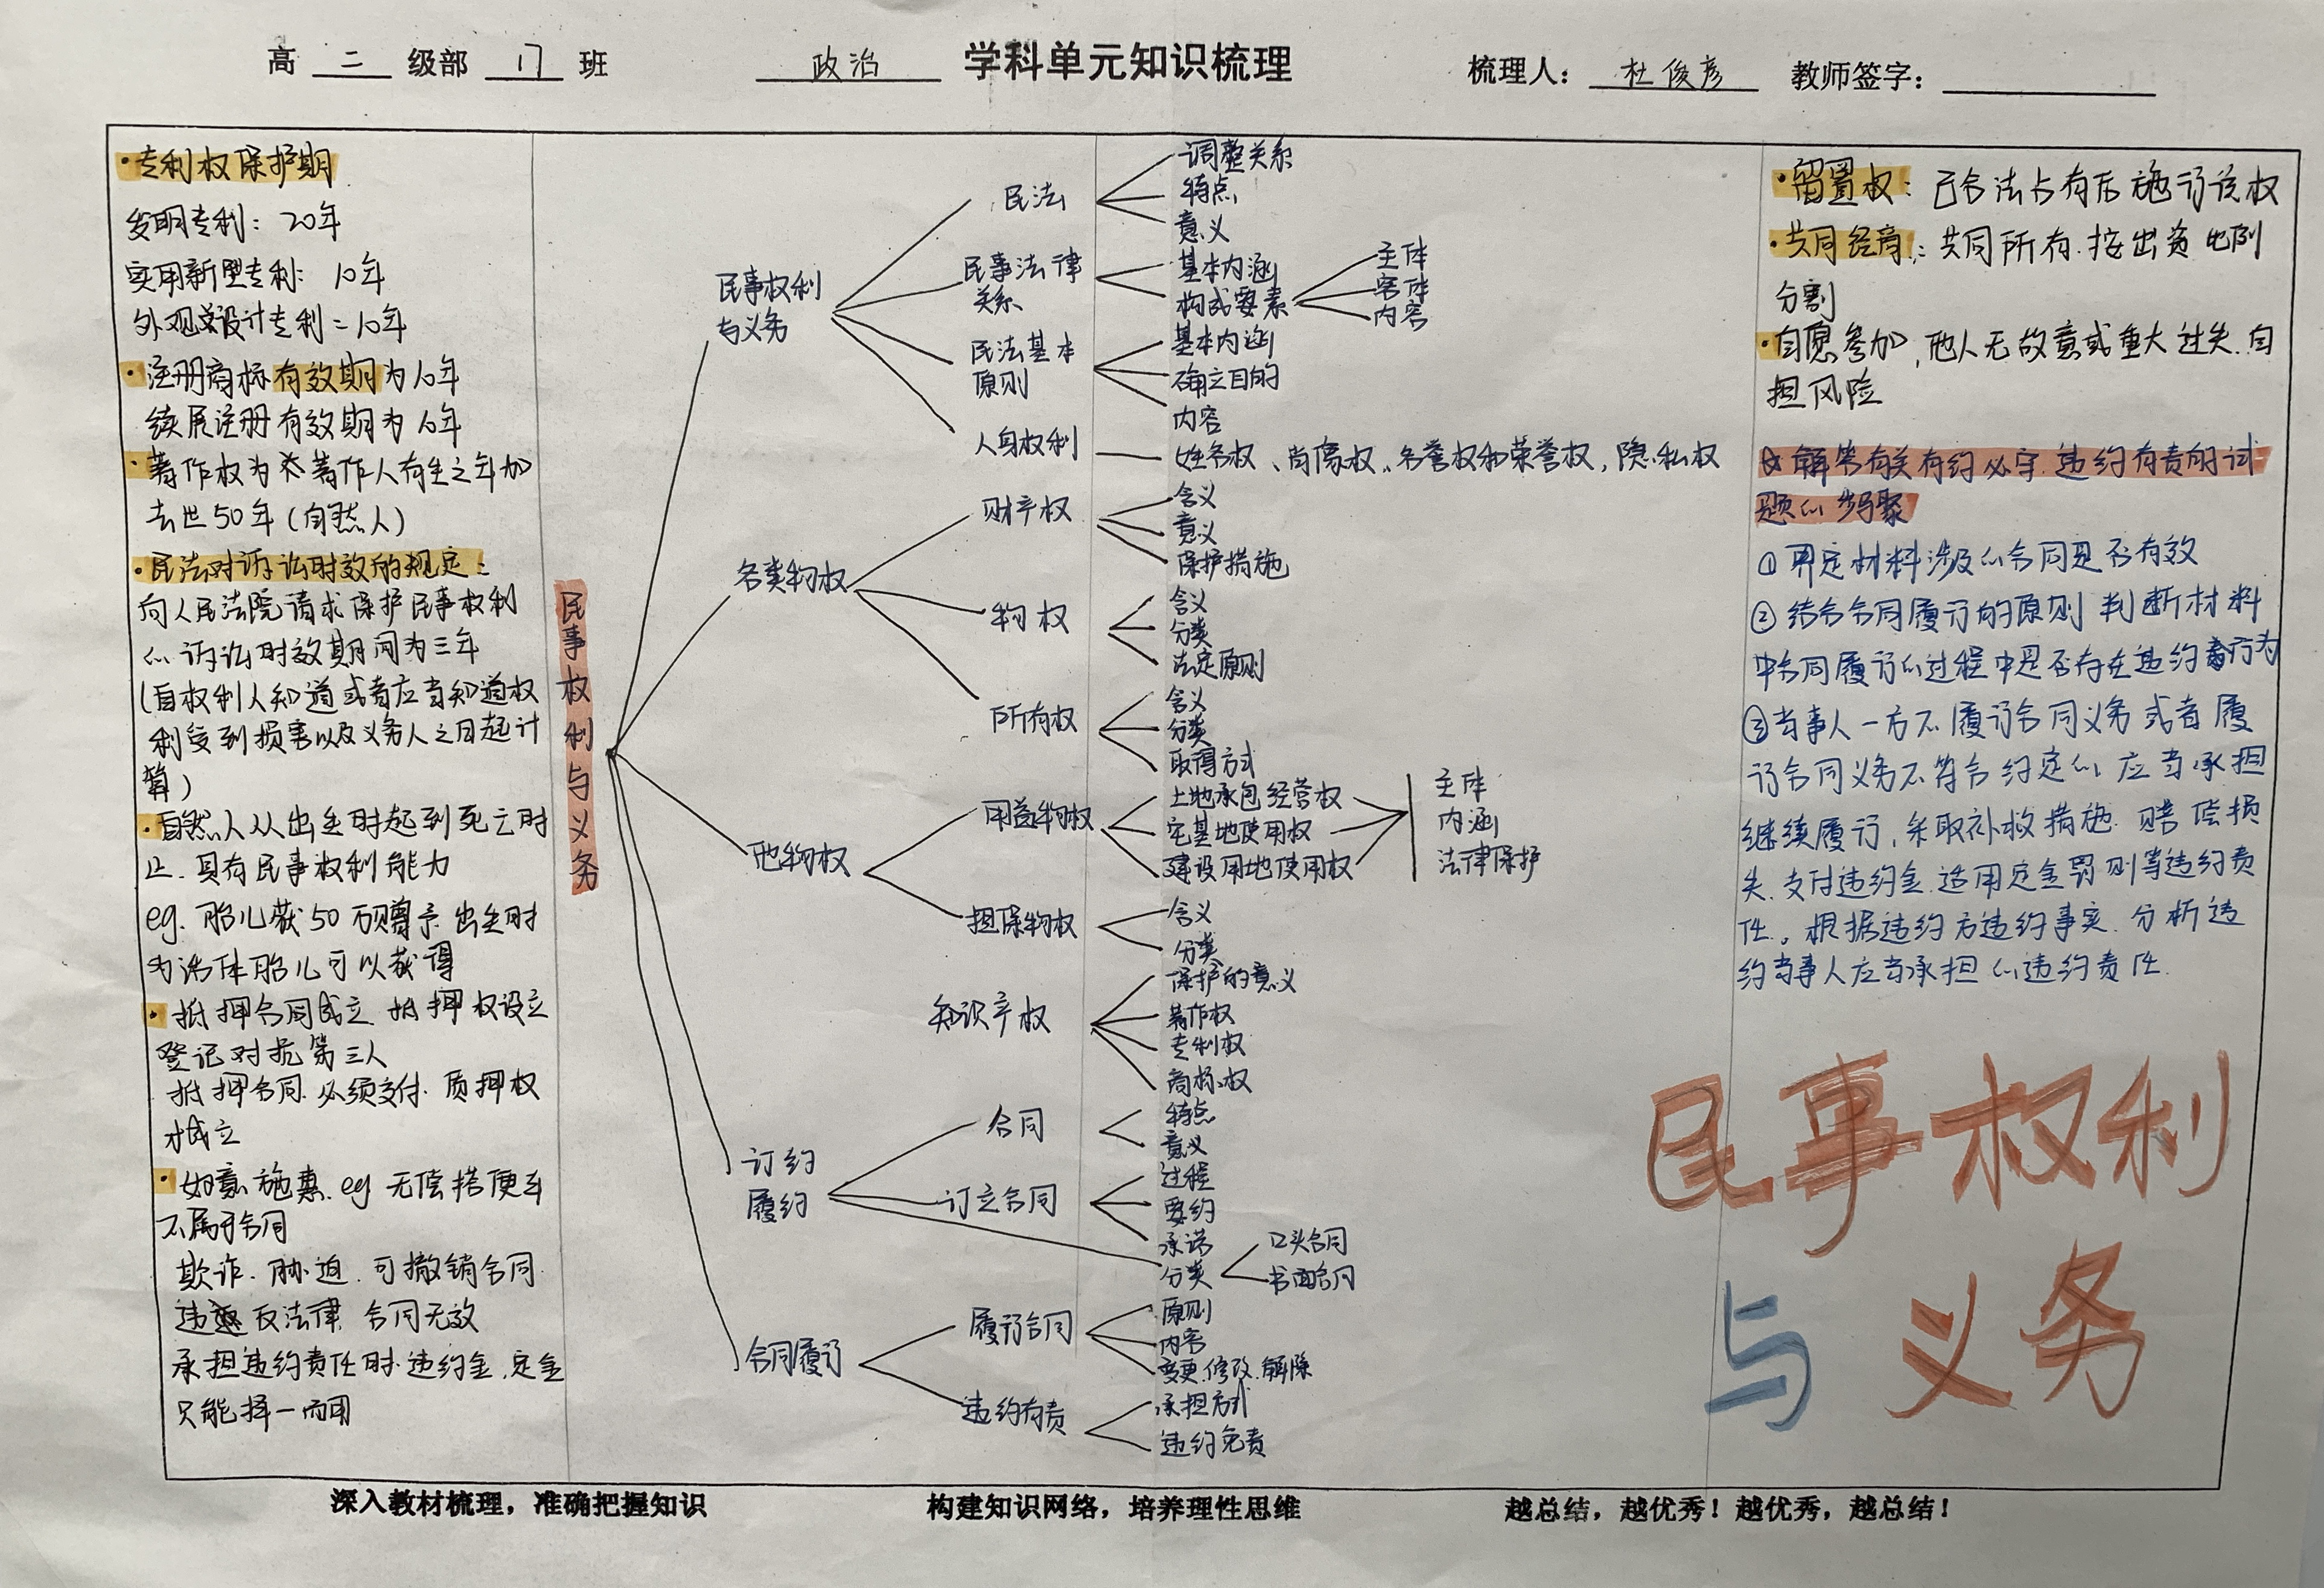 高 二 级部 17 班
政治 学科单元知识梳理
梳理人： 杜俊彦 教师签字：
·专利权保护期
发明专利：20年
实用新型专利：10年
外观设计专利：10年
·注册商标有效期为10年
续展注册有效期为10年
·著作权为 著作人有生之年加
去世50年（自然人）
·民法对诉讼时效的规定：
向人民法院请求保护民事权利
的诉讼时效期间为三年
（自权利人知道或者应当知道权
利受到损害以及义务人之日起计
算）
·自然人从出生时起到死亡时
止.具有民事权利能力
eg.胎儿获50万赠予.出生时
为活体胎儿可以获得
·抵押合同成立.抵押权设立
登记对抗第三人
抵押合同.必须交付.质押权
才成立
·好意施惠.eg无偿搭便车
不属于合同
欺诈.胁迫.可撤销合同
违反法律 合同无效
承担违约责任时.违约金.定金
只能择一而用
民事权利与义务
民事权利
与义务
民法
调整关系
特点
意义
民事法律
关系
基本内涵
构成要素
主体
客体
内容
民法基本
原则
基本内涵
确立目的
内容
人身权利
姓名权、肖像权、名誉权和荣誉权，隐私权
各类物权
财产权
含义
意义
保护措施
物权
含义
分类
法定原则
所有权
含义
分类
取得方式
他物权
用益物权
土地承包经营权
宅基地使用权
建设用地使用权
主体
内涵
法律保护
担保物权
含义
分类
知识产权
保护的意义
著作权
专利权
商标权
订约
履约
合同
特点
意义
订立合同
过程
要约
承诺
分类
口头合同
书面合同
合同履行
履行合同
原则
内容
变更.修改.解除
违约有责
承担方式
违约免责
·留置权：已合法占有后施行该权
·共同经商：共同所有.按出资比例
分割
·自愿参加，他人无故意或重大过失.自
担风险
☆解答有关有约必守.违约有责的试
题的步骤
①界定材料涉及的合同是否有效
②结合合同履行的原则 判断材料
中合同履行的过程中是否存在违约行为
③当事人一方不履行合同义务或者履
行合同义务不符合约定的 应当承担
继续履行，采取补救措施.赔偿损
失.支付违约金.适用定金罚则等违约责
任。根据违约方违约事实.分析违
约当事人应当承担的违约责任.
民事权利
与义务
深入教材梳理，准确把握知识
构建知识网络，培养理性思维
越总结，越优秀！越优秀，越总结！